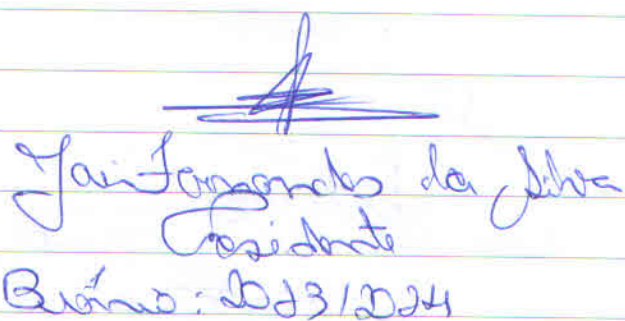 Jair Fernandes da Silva
Presidente
Biênio: 2023/2024